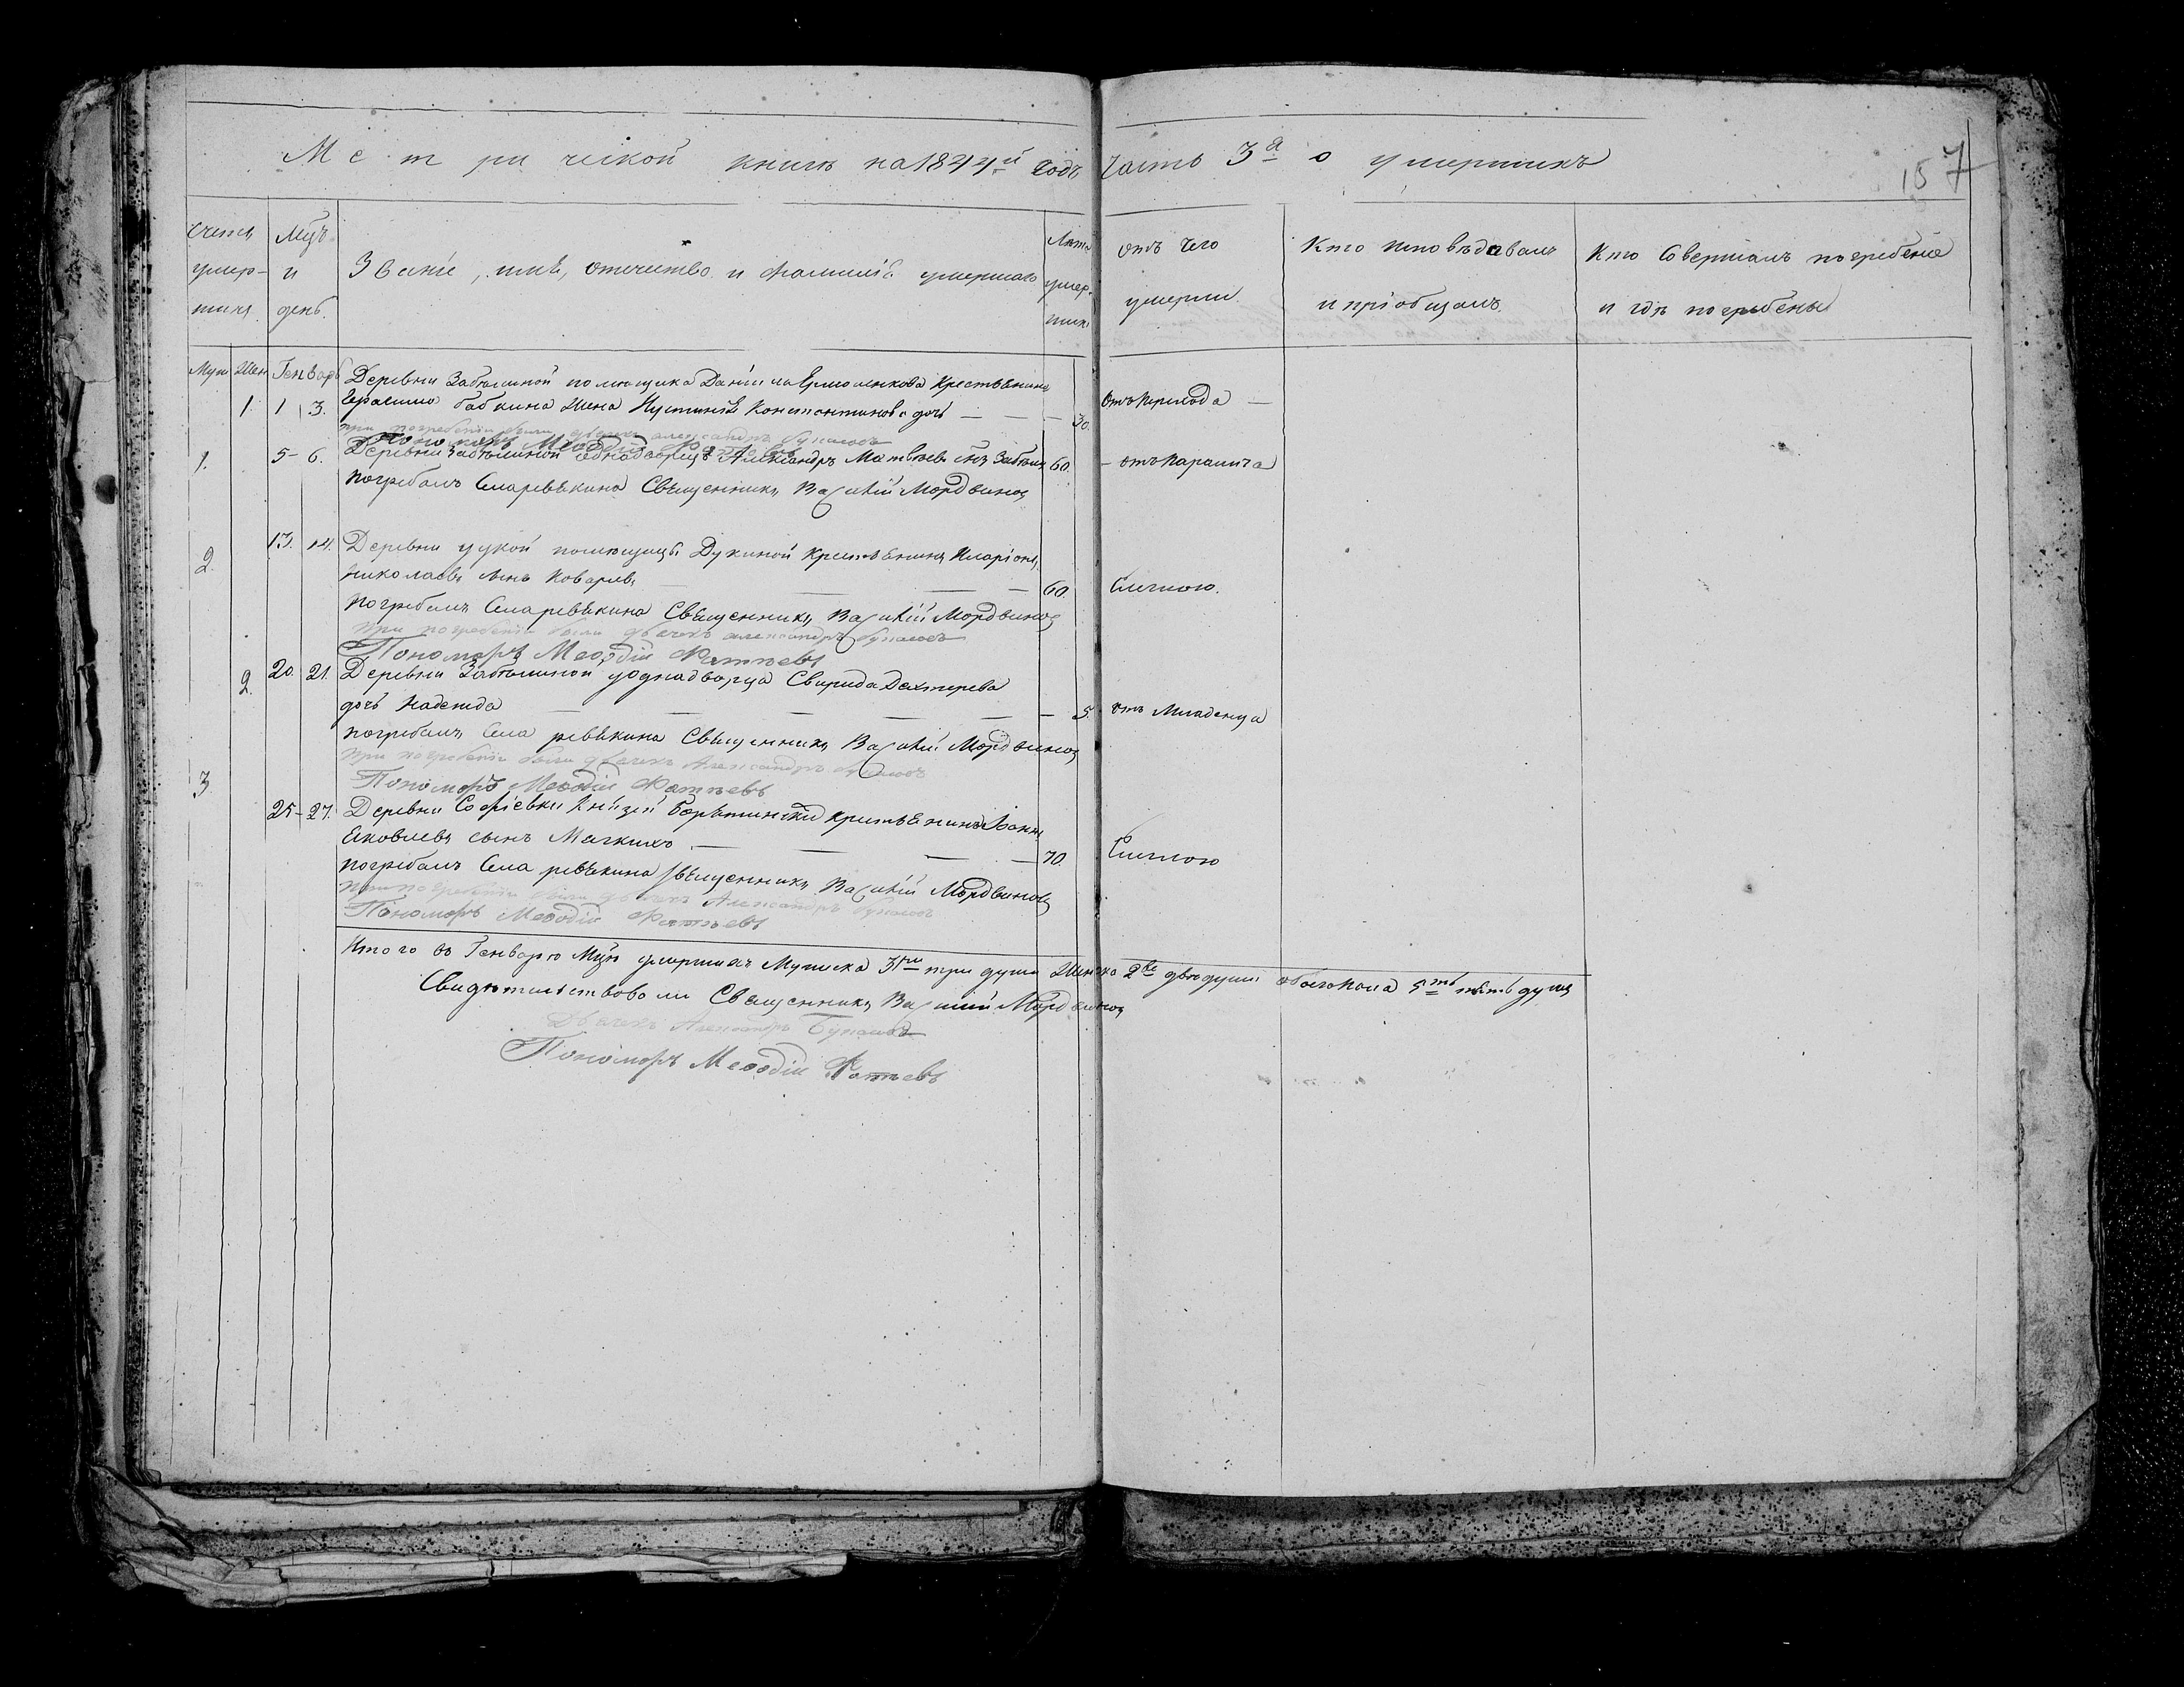 Метрической книги на 1844й годъ часть 3я о умершихъ
157
Счетъ умершихъ
Мцъ и день.
Званіе, имя, отечество и фамиліа умершаго
Лѣта умершихъ
отъ чего умерли.
Кто исповѣдовалъ и пріобщалъ.
Кто Совершалъ погребеніе и гдѣ погребены
Муж Жен Генварь
Деревни Забѣлиной помѣщика Даніила Ермоленкова Крестьянина
1 1 3. Герасима Бабкина Жена Иустинія Константинова дочь — — — 30. Отъ Перелода —
при погребеніи были дьячекъ александръ Букаловъ
Пономоръ Меѳодій
1. 5 - 6. Деревни Забѣлиной однадворецъ Александръ Матвѣевъ снъ 60. - отъ Паралича
погребалъ Села ревякина Священникъ Василій Мордвиновъ
2. 13. 14. Деревни помещицы Дукиной крестьянинъ Иларіонъ
Николаевъ сынъ Коваревъ — — — 60. Систною.
погребалъ Села ревякина Священникъ Василій Мордвиновъ
при погребеніи были дьячекъ александръ Букаловъ
Пономоръ Меѳодій Фатѣевъ
2. 20. 21. Деревни Забѣлиной уоднадворца Свирида Дехтерева
дочь Надежда — — — — — — 5. отъ Младенца
погребалъ Села ревякина Священникъ Василій Мордвиновъ
при погребеніи были дьячекъ Александръ Букаловъ
Пономоръ Меѳодій Фатѣевъ
3.
25 - 27. Деревни Софіевки Князей Борятинских крестьянинъ Іоаннъ
Яковлевъ сынъ Мягкихъ. — — — — 70. Систною
погребалъ Села ревякина священникъ Василій Мордвиновъ
при погребеніи были дьячекъ Александръ Букаловъ
Пономоръ Меѳодій Фатѣевъ
Итого въ Генварѣ Мцѣ умершихъ Мужеска 3ри три души Женска 2ве двѣ души обоего пола 5ть пять душъ
Свидѣтельствовали Священникъ Василій Мордвиновъ
Дьячекъ Александръ Букаловъ
Пономоръ Меѳодій Фатѣевъ